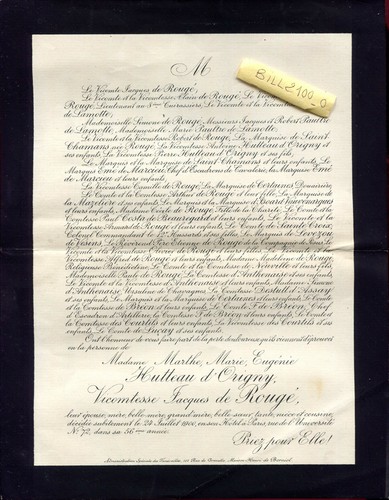 M.
BILL2100_0
Le Vicomte Jacques de Rougé,
Le Vicomte et la Vicomtesse Alain de Rougé, Le
Rougé, Lieutenant au 8ème Cuirassiers, Le Vicomte et la Vicomtesse
de Lamotte,
Mademoiselle Simone de Rougé, Messieurs Jacques et Robert Paultre
de Lamotte, Mademoiselle Marie Paultre de Lamotte,
Le Vicomte et la Vicomtesse Robert de Rougé, La Marquise de Saint
Chamans née Rougé, La Vicomtesse Hutteau d'Origny et
ses enfants, La Vicomtesse Pierre Hutteau d'Origny et ses fils,
Le Marquis et la Marquise de Saint Chamans et leurs enfants, Le
Marquis Emé de Marcieu, Chef d'Escadrons de Cavalerie, la Marquise Emé
de Marcieu et leurs enfants,
La Vicomtesse Camille de Rougé, La Marquise de Certaines Douairière,
Le Comte et la Comtesse Arthur de Rougé et leur fille, Le Marquis et la Marquise de
la Mazelière et ses enfants, Le Marquis et la Marquise d'Isoard Vauvenargues
et leurs enfants, Madame Cécile de Rougé Fille de la Charité, Le Comte et la
Comtesse Paul Costa de Beauregard et leurs enfants, Le Vicomte et la
Vicomtesse Arnaud de Rougé et leurs enfants, Le Comte de Sainte Croix,
Colonel Commandant le Dragons et ses enfants, La Marquise de Lévezou
de Vesins, Le Révérend Père Etienne de Rougé de la Compagnie de Jésus, Le
Vicomte et la Vicomtesse de Rougé et leurs enfants, Le Vicomte et la
Vicomtesse Alfred de Rougé et leurs enfants, Madame Madeleine de Rougé
Religieuse Bénédictine, Le Comte et la Comtesse de Neuville et leurs fils,
Mademoiselle Paule de Rougé, La Comtesse d'Anthenaise et ses enfants,
Le Vicomte et la Vicomtesse d'Anthenaise et leurs enfants, Madame Simone
d'Anthenaise, Ursuline de
et ses enfants, Le Marquis et la Marquise de Certaines et leurs enfants, Le Comte
et la Comtesse de Bréon et leurs enfants, Le Comte F. de Brécey, Chef
d'Escadron d'Artillerie, la Comtesse F. de Brécey et leurs enfants, Le Comte et
la Comtesse des Courtils et leurs enfants, La Vicomtesse des Courtils et ses
enfants, Le Comte de Luçay et ses enfants.
Ont l'honneur de vous faire part de la perte douloureuse qu'ils viennent d'éprouver
en la personne de
Madame Marthe, Marie, Eugénie
Hutteau d'Origny,
Vicomtesse Jacques de Rougé,
leur épouse, mère, belle-mère, grand'mère, belle-sœur, tante, nièce et cousine,
décédée subitement le 24 Juillet 1900, en son Hôtel à Paris, rue de l'Université
N° 72, dans sa 56ème année.
Priez pour Elle!